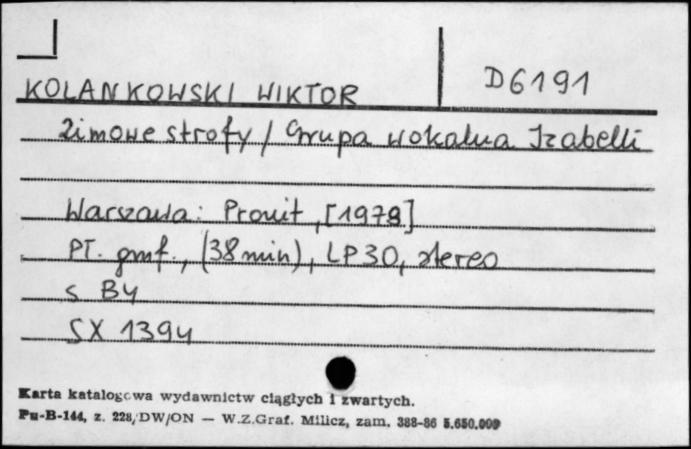 KOLANKOWSKI WIKTOR
D6191
Zimowe strofy / Grupa wokalna Izabelli
Warszawa: Pronit, [1978]
PT. gmf., (38 min), LP 30, stereo
s By
SX 1394
Karta katalogowa wydawnictw ciągłych i zwartych.
Pu-B-144, z. 228/DW/ON — W.Z.Graf. Milicz, zam. 388-86 5.650.000